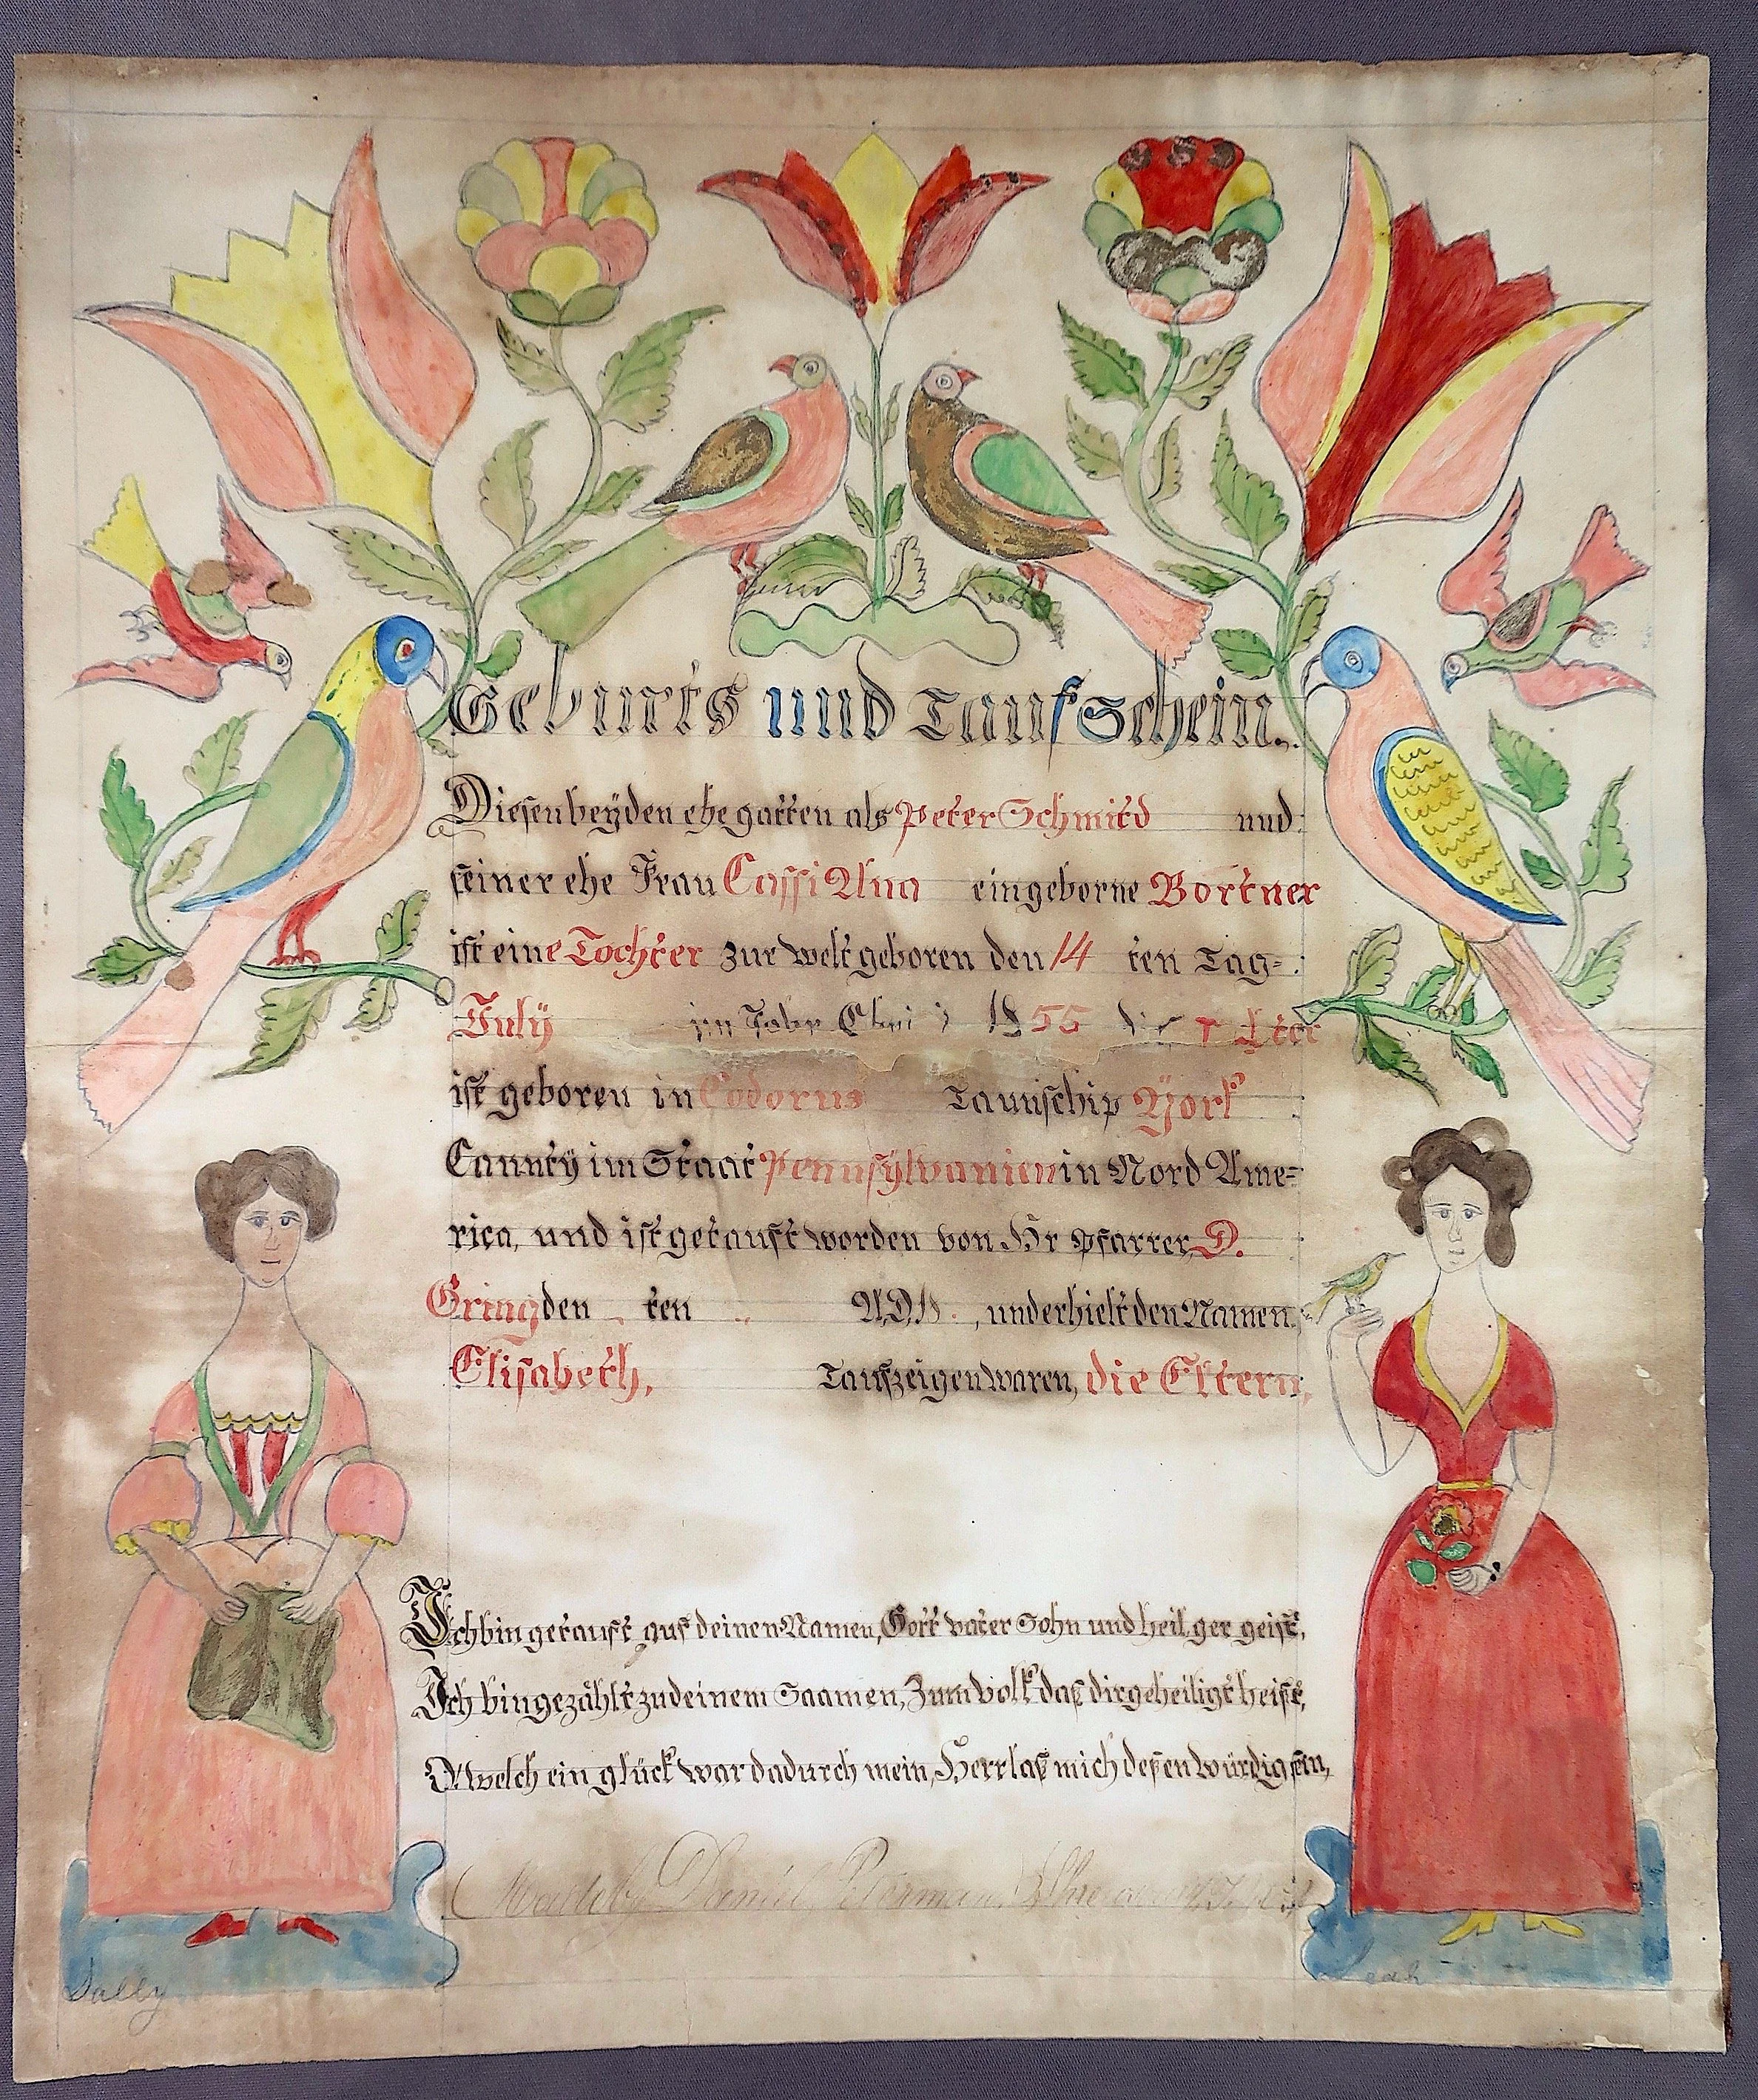 Geburts und TaufSchein.
Diesen beyden ehe gatten als Peter Schmitd und
seiner ehe Frau Cassi Ana eingeborne Bortner
ist eine Tochter zur welt geboren den 14 ten Tag=
July im Jahr 1855
ist geboren in Codorus Taunschip York
Caunty im Staat Pennsylvanien in Nord Ame=
rica, und ist getauft worden von Hr Pfarrer, D.
Gring den ten A.D. , und erhielt den Namen
Elisabeth, Taufzeigen waren, die Eltern,
Ich bin getauft auf deinen Namen, Gott vater Sohn und heilger geist,
Ich bin gezählt zu deinem Saamen, Zum volk daß dir geheiligt heist,
O welch ein glück war dadurch mein, Herr laß mich deßen würdig sein,
Made by Daniel Peterman, Shre
Sally
eah